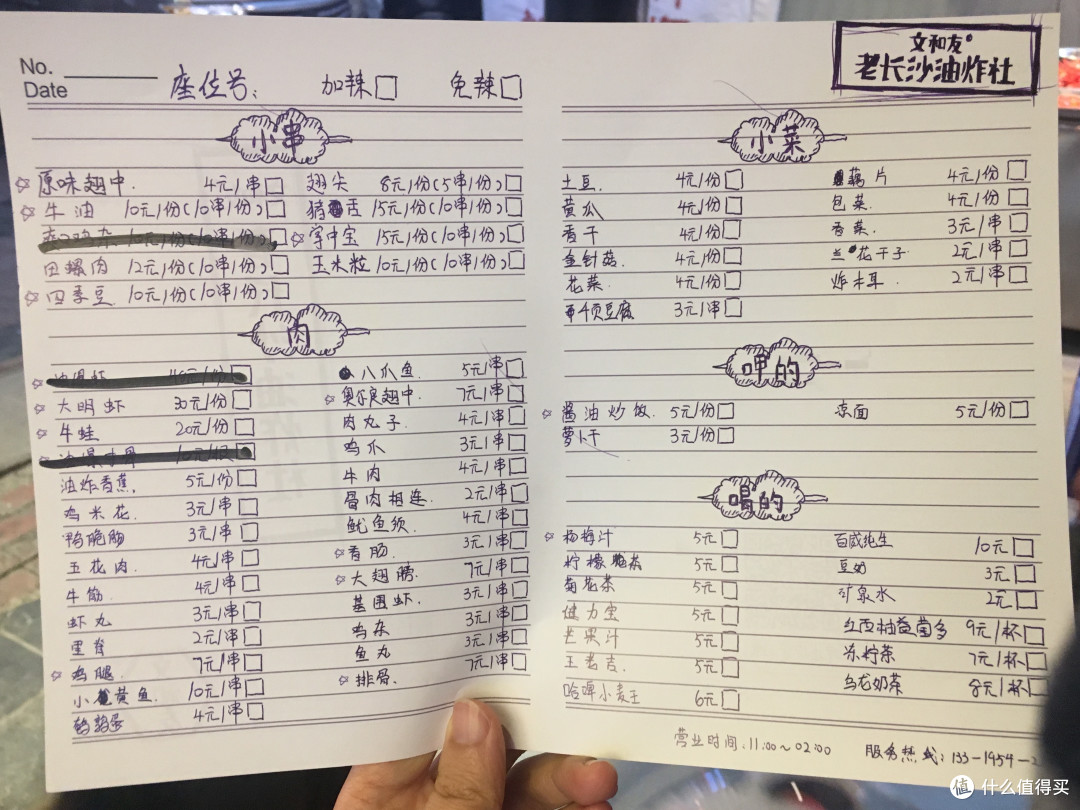 No.
Date
座位号: 加辣 免辣
文和友
老长沙油炸社
小串
原味翅中. 4元/串 翅尖 8元/份(5串/份)
牛油 10元/份(10串/份) 猪舌 15元/份(10串/份)
10元/份(10串/份) 掌中宝 15元/份(10串/份)
田螺肉 12元/份(10串/份) 玉米粒 10元/份(10串/份)
四季豆 10元/份(10串/份)
肉
八爪鱼 5元/串
大明虾 30元/份 奥尔良翅中. 7元/串
牛蛙 20元/份 肉丸子. 4元/串
10元/只 鸡爪 3元/串
油炸香蕉 5元/份 牛肉 4元/串
鸡米花. 3元/串 骨肉相连. 2元/串
鸭脆肠 3元/串 鱿鱼须 4元/串
五花肉. 4元/串 香肠. 3元/串
牛筋 4元/串 大翅膀. 7元/串
虾丸 3元/串 基围虾. 3元/串
里脊 2元/串 鸡杂 3元/串
鸡腿 7元/串 鱼丸 3元/串
小黄鱼. 10元/串 排骨. 7元/串
鹌鹑蛋 4元/串
小菜
土豆. 4元/份 藕片 4元/份
黄瓜 4元/份 包菜. 4元/份
香干 4元/份 香菜. 3元/串
金针菇. 4元/份 兰花干子. 2元/串
花菜. 4元/份 炸木耳. 2元/串
千页豆腐 3元/串
呷的
酱油炒饭. 5元/份 凉面 5元/份
萝卜干 3元/份
喝的
杨梅汁 5元 百威纯生 10元
柠檬茶 5元 豆奶 3元
菊花茶 5元 矿泉水 2元
健力宝 5元 红西柚益菌多 9元/杯
芒果汁 5元 冻柠茶 7元/杯
王老吉 5元 乌龙奶茶 8元/杯
哈啤小麦王 6元
营业时间:11:00~02:00 服务热线:133-1954-
值 什么值得买